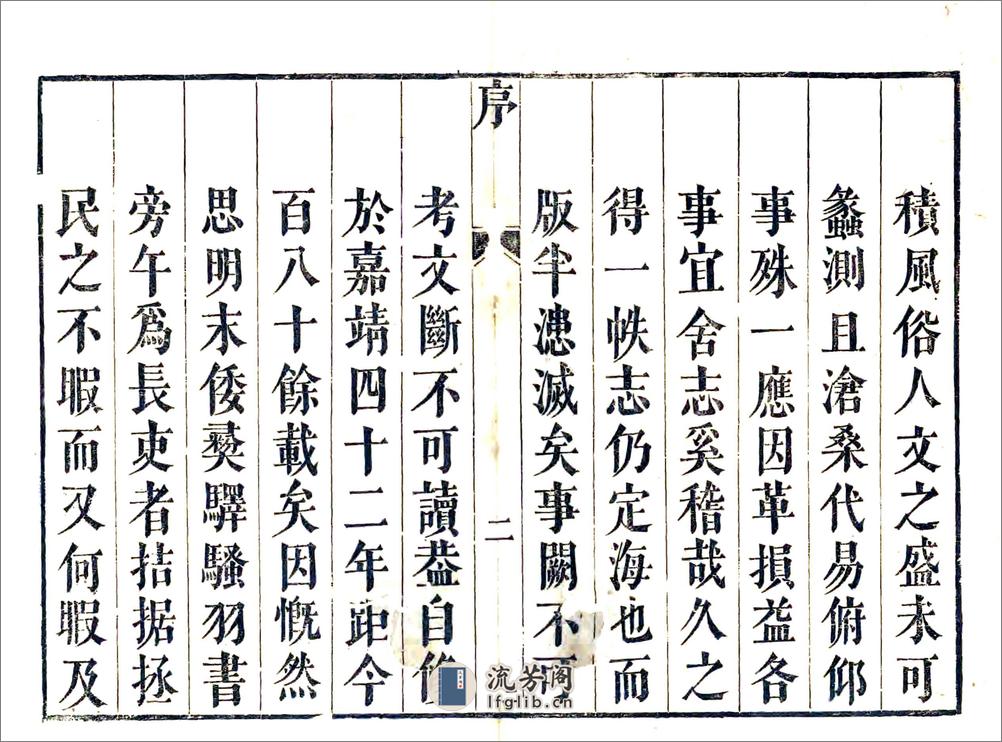 積風俗人文之盛未可
蠡測且滄桑代易俯仰
事殊一應因革損益各
事宜舍志奚稽哉久之
得一帙志仍定海也而
版半漶滅矣事闕不可
序
二
考文斷不可讀葢自修
於嘉靖四十二年距今
百八十餘載矣因慨然
思明末倭燹驛騷羽書
旁午爲長吏者拮据拯
民之不暇而又何暇及
流芳阁
lfglib.cn